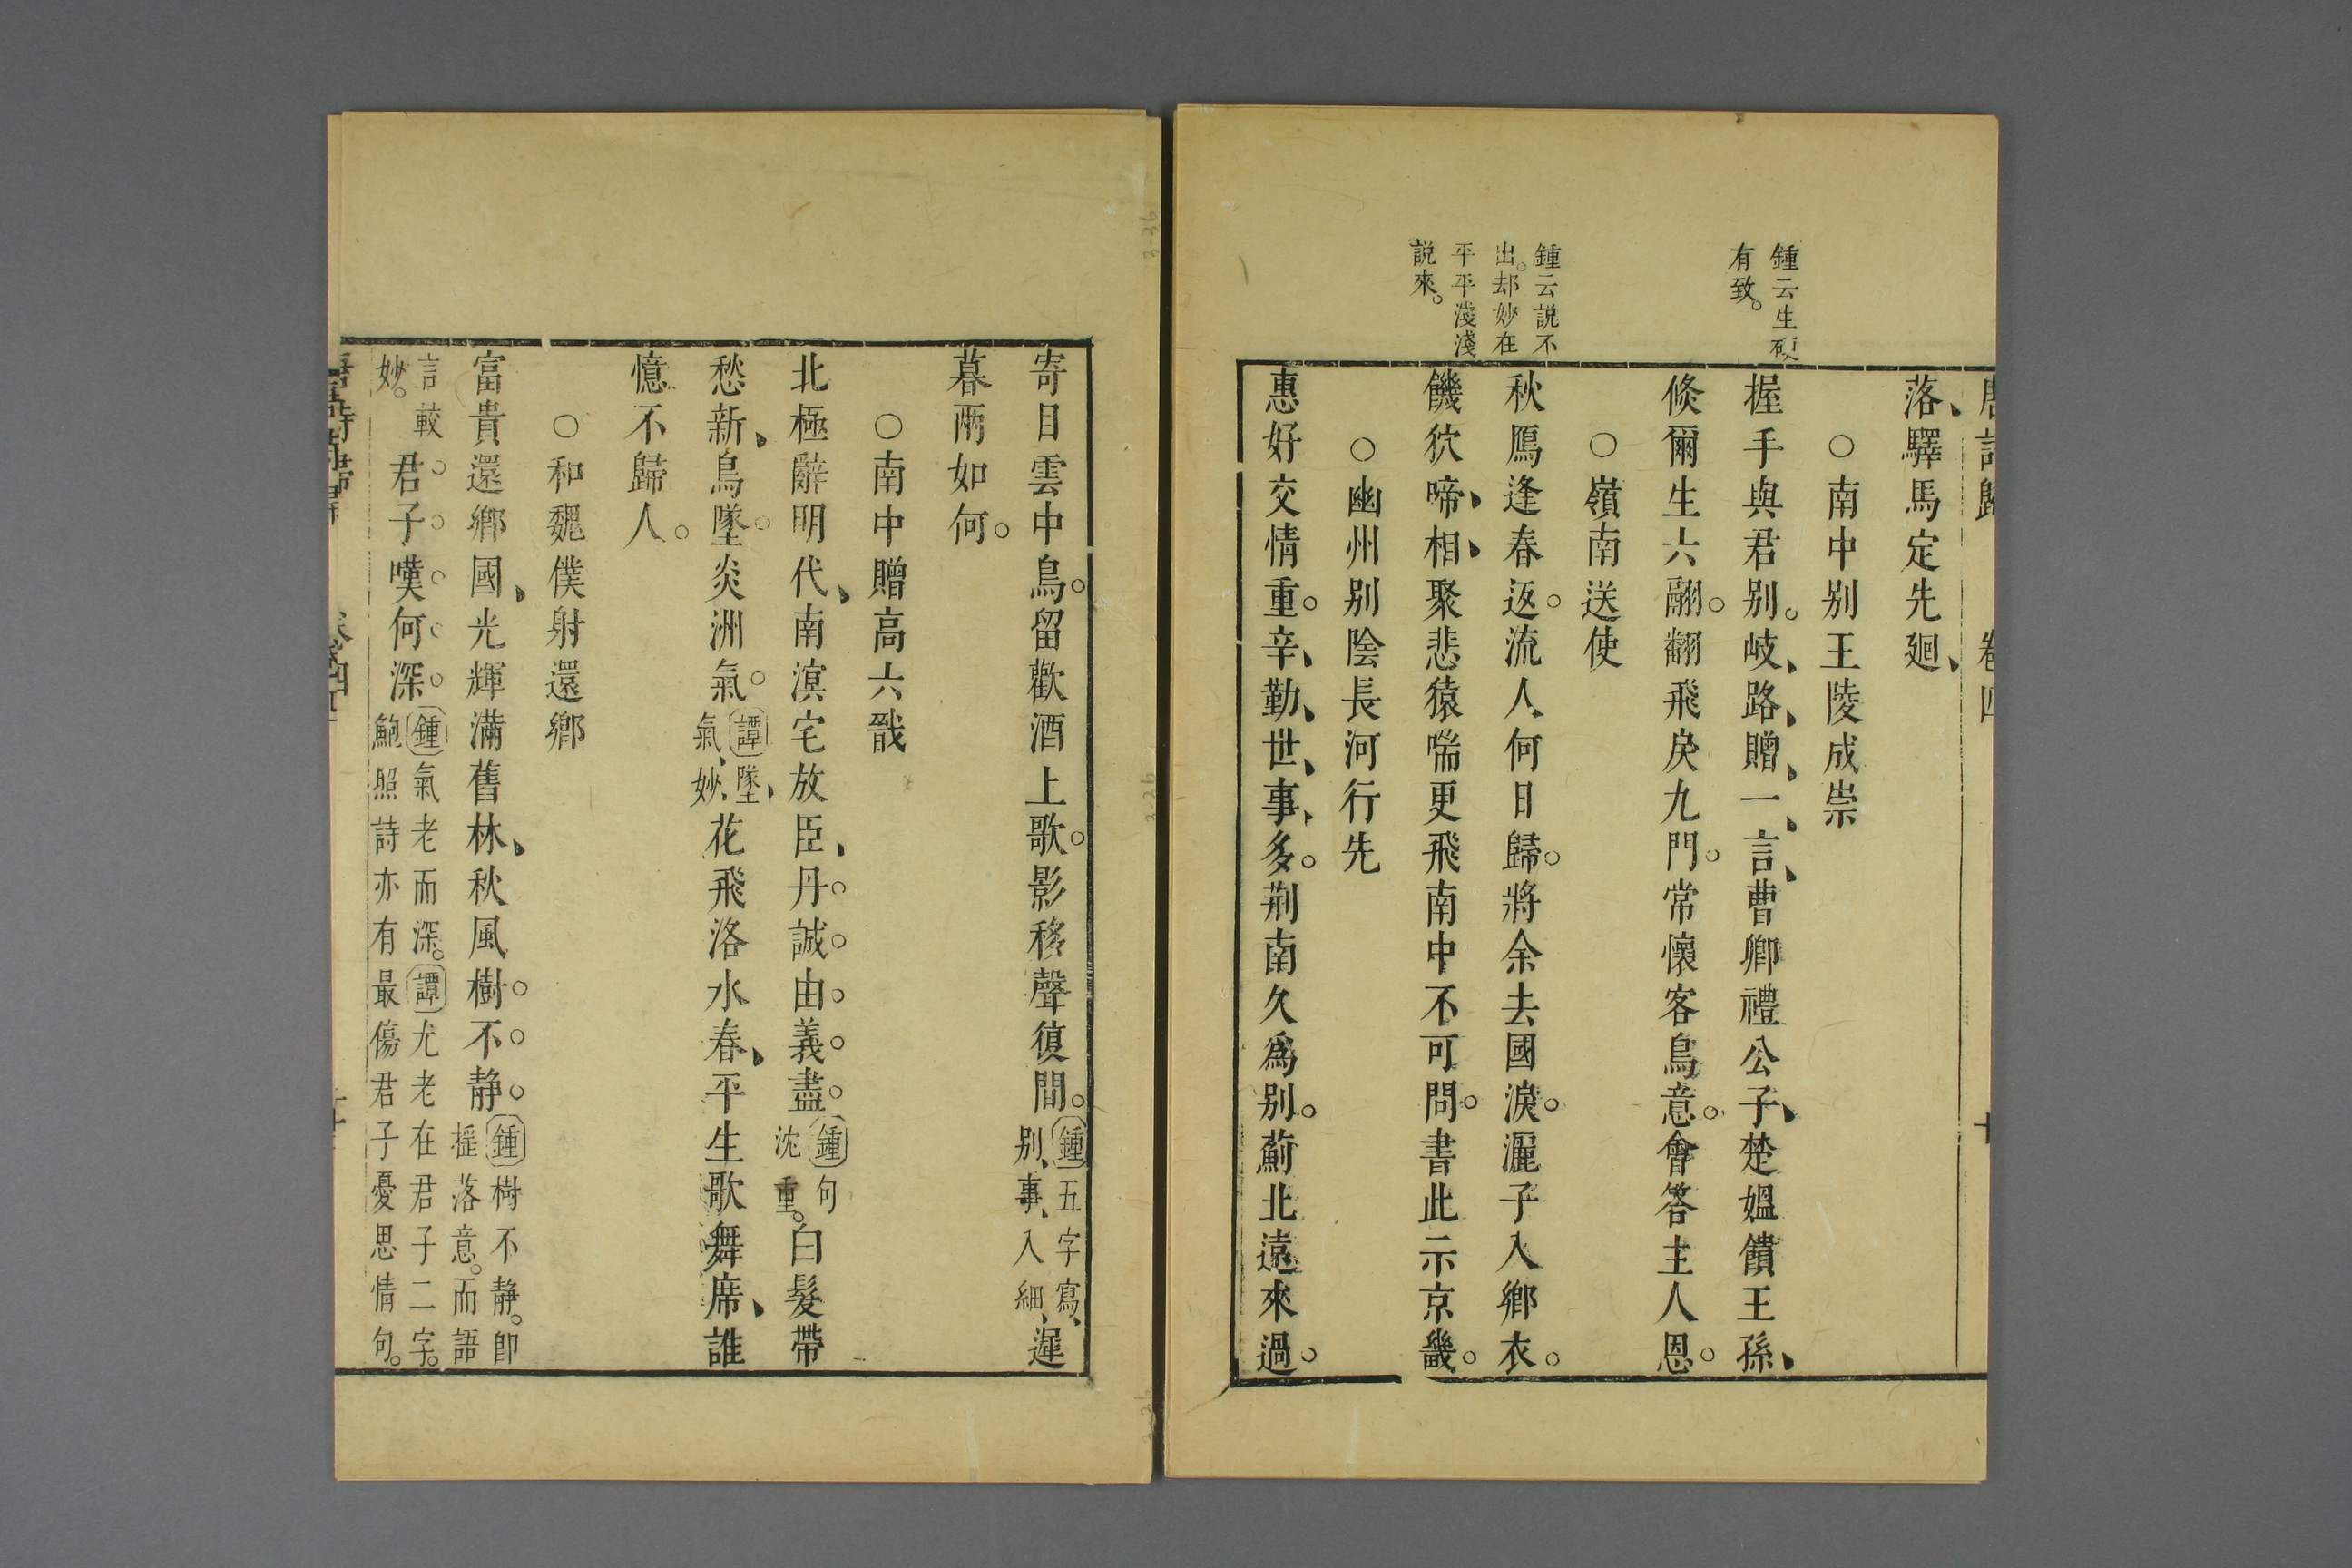 唐詩歸 卷四 十
落驛馬定先廻
○南中别王陵成崇
鍾云生硬
有致
握手與君别岐路贈一言曹卿禮公子楚媼饋王孫
倐爾生六翮翻飛戾九門常懷客鳥意會答主人恩
○嶺南送使
鍾云説不
出却妙在
平平淺淺
説來
秋鴈逢春返流人何日歸將余去國淚灑子入鄉衣
饑狖啼相聚悲猿喘更飛南中不可問書此示京畿
○幽州别陰長河行先
惠好交情重辛勤世事多荆南久爲别薊北遠來過
寄目雲中鳥留歡酒上歌影移聲復間鍾五字寫别事入細遲
暮兩如何
○南中贈高六戩
北極辭明代南溟宅放臣丹誠由義盡鍾句沈重白髮帶
愁新鳥墜炎洲氣譚墜氣妙花飛洛水春平生歌舞席誰
憶不歸人
○和魏僕射還鄉
富貴還鄉國光輝滿舊林秋風樹不静鍾樹不静即摇落意而語
言較妙君子嘆何深鍾氣老而深譚尤老在君子二字鮑照詩亦有最傷君子憂思情句